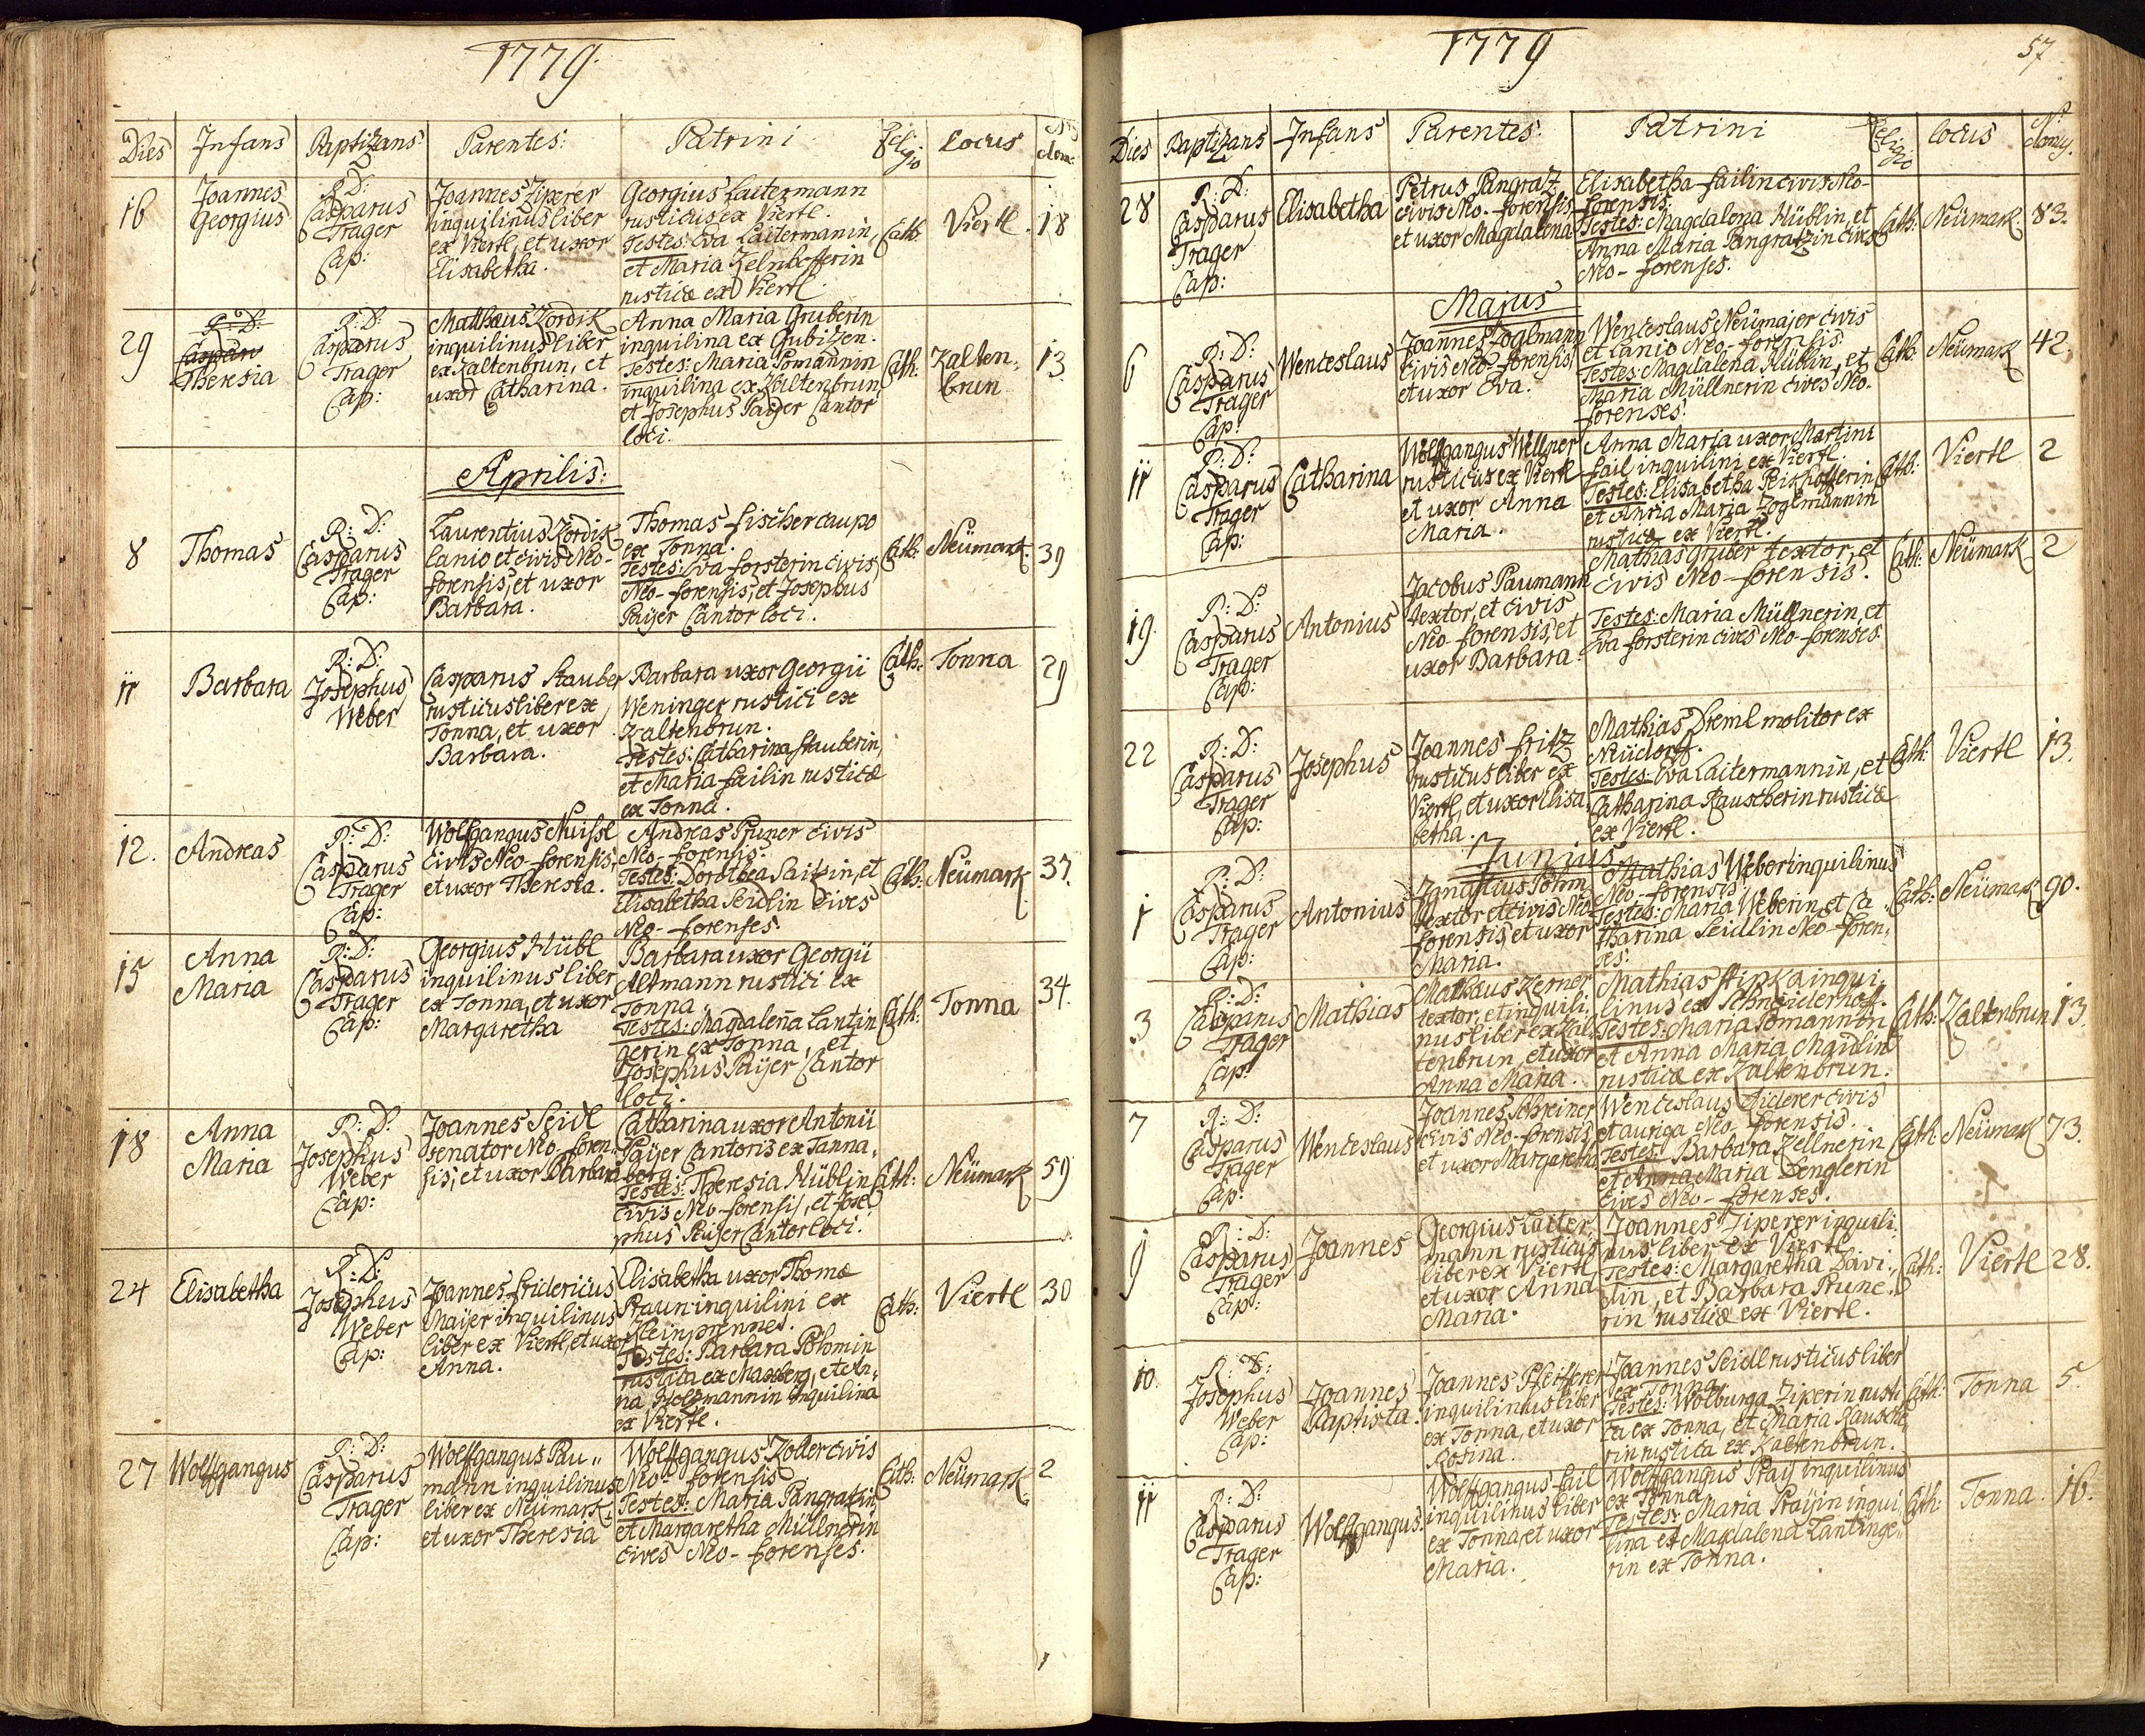 1779.
Dies Infans Baptizans: Parentes: Patrini Religio Locus
16
Joannes
Georgius
R: D:
Casparus
Trager
Cap:
Joannes Ziperer
inquilinus liber
ex Viertl, et uxor
Elisabetha.
Georgius Laitermann
rusticus ex Viertl.
Testes: Eva Laitermanin,
et Maria
rusticæ ex Viertl.
Cath:
Viertl.
18
29
R: D:
Caspar
Theresia
R: D:
Casparus
Trager
Cap:
Matthæus Kordik
inquilinus liber
ex Kaltenbrun, et
uxor Catharina.
Anna Maria Gruberin
inquilina ex Gubitzen.
Testes: Maria Tomannin
inquilina ex Kaltenbrun
et Josephus Paijer Cantor
loci.
Cath:
Kalten-
brun
13.
Aprilis:
8
Thomas
R: D:
Casparus
Trager
Cap:
Laurentius Kordik
lanio et civis Neo-
forensis, et uxor
Barbara.
Thomas Fischer caupo
ex Tonna.
Testes: Eva Forsterin civis
Neo-forensis, et Josephus
Paijer Cantor loci.
Cath:
Neümark.
39
11
Barbara
R: D:
Josephus
Weber
Casparus Stauber
rusticus liber ex
Tonna, et uxor
Barbara.
Barbara uxor Georgii
Weninger rustici ex
Kaltenbrun.
Testes: Catharina Stauberin,
et Maria Failin rusticæ
ex Tonna.
Cath:
Tonna
29
12.
Andreas
R: D:
Casparus
Trager
Cap:
Wolfgangus Nuissl
civis Neo-forensis,
et uxor Theresia.
Andreas Pruner civis
Neo-forensis.
Testes: Dorothea Saitzin, et
Elisabetha Seidlin cives
Neo-forenses.
Cath:
Neümark
37.
15
Anna
Maria
R: D:
Casparus
Trager
Cap:
Georgius Hübl
inquilinus liber
ex Tonna, et uxor
Margaretha
Barbara uxor Georgii
Altmann rustici ex
Tonna
Testes: Magdalena Lantin
gerin ex Tonna, et
Josephus Paijer Cantor
loci.
Cath:
Tonna
34.
18
Anna
Maria
R: D:
Josephus
Weber
Cap:
Joannes Seidl
senator Neo-foren-
sis, et uxor Barbara
Catharina uxor Antonii
Paijer Cantoris ex Tanna,
berg.
Testes: Theresia Hüblin
civis Neo-forensis, et Jose
phus Paijer Cantor loci.
Cath:
Neümark
59
24
Elisabetha
R: D:
Josephus
Weber
Cap:
Joannes Fridericus
Maijer inquilinus
liber ex Viertl, et uxor
Anna.
Elisabetha uxor Thomæ
Praun inquilini ex
Kleinprennet.
Testes: Barbara Böhmin
rustica ex Maxberg, et An,,
na Holzmannin inquilina
ex Viertl.
Cath:
Viertl
30
27
Wolfgangus
R: D:
Casparus
Trager
Cap:
Wolfgangus Pau,,
mann inquilinus
liber ex Neümark,
et uxor Theresia
Wolfgangus Zoller civis
Neo-forensis
Testes: Maria Pangratzin,
et Margaretha Müllnerin
cives Neo-forenses.
Cath:
Neümark.
2
1779
57
Dies Baptizans Infans Parentes: Patrini Religio locus
28
R: D:
Casparus
Trager
Cap:
Elisabetha
Petrus Pangratz
civis Neo-forensis
et uxor Magdalena
Elisabetha Failin civis Neo-
forensis:
Testes: Magdalena Hüblin, et
Anna Maria Pangratzin cives
Neo-forenses.
Cath:
Neümark.
83.
Majus
6
R: D:
Casparus
Trager
Cap:
Wenceslaus
Joannes Zoglmann
civis Neo-forensis,
et uxor Eva.
Wenceslaus Neümajer civis
et lanio Neo-forensis.
Testes: Magdalena Hüblin, et
Maria Müllnerin cives Neo-
forenses.
Cath:
Neümark
42.
11
R: D:
Casparus
Trager
Cap:
Catharina
Wolfgangus Wellner
rusticus ex Viertl
et uxor Anna
Maria.
Anna Maria uxor Martini
Fail inquilini ex Viertl.
Testes: Elisabetha
et Anna Maria Zoglmannin
rusticæ ex Viertl.
Cath:
Viertl
2
19.
R: D:
Casparus
Trager
Cap:
Antonius
Jacobus Paumann
textor, et civis
Neo-forensis, et
uxor Barbara.
Mathias Gruber textor, et
civis Neo-forensis.
Testes: Maria Müllnerin, et
Eva Forsterin cives Neo-forenses.
Cath:
Neümark
2
22
R: D:
Casparus
Trager
Cap:
Josephus
Joannes Fritz
rusticus liber ex
Viertl, et uxor Elisa
betha.
Mathias Dreml molitor ex
Neüdorff.
Testes: Eva Laitermannin, et
Catharina Rauscherin rusticæ
ex Viertl.
Cath:
Viertl
13.
Junius
1
R: D:
Casparus
Trager
Cap:
Antonius
Ignatius Böhm
textor et civis Neo
forensis, et uxor
Maria.
Mathias Weber inquilinus
Neo-forensis
Testes: Maria Weberin, et Ca
tharina Seidlin Neo-foren,
ses.
Cath:
Neümark
90.
3
R: D:
Casparus
Trager
Cap:
Mathias
Mathæus Kerner
textor, et inquili
nus liber ex Kal
tenbrun, et uxor
Anna Maria.
Mathias Stipka inqui
linus ex Schneiderhoff.
Testes: Maria Tomannin
et Anna Maria Maidlin
rusticæ ex Kaltenbrun.
Cath:
Kaltenbrun
13.
7
R: D:
Casparus
Trager
Cap:
Wenceslaus
Joannes Schreiner
civis Neo-forensis,
et uxor Margaretha
Wenceslaus Fiderer civis
et auriga Neo-forensis.
Testes: Barbara Zellnerin
et Anna Maria Denglerin
cives Neo-forenses.
Cath:
Neümark
73.
9
R: D:
Casparus
Trager
Cap:
Joannes
Georgius Laiter,
mann rusticus
liber ex Viertl
et uxor Anna
Maria.
Joannes Ziperer inquili,
nus liber ex Viertl
Testes: Margaretha Davi,
din, et Barbara Prune,
rin rusticæ ex Viertl.
Cath:
Viertl
28.
10.
R: D:
Josephus
Weber
Cap:
Joannes
Baptista.
Joannes Pfeifferer
inquilinus liber
ex Tonna, et uxor
Rosina.
Joannes Seidl rusticus liber
ex Tonna.
Testes: Wolburga Ziperin rusti
ca ex Tonna, et Maria Rausche,
rin rustica ex Kaltenbrun.
Cath:
Tonna
5.
11
R: D:
Casparus
Trager
Cap:
Wolfgangus.
Wolfgangus Fail
inquilinus liber
ex Tonna, et uxor
Maria.
Wolfgangus Praij inquilinus
ex Tonna
Testes: Maria Praijin inqui
lina et Magdalena Lantinge,,
rin ex Tonna.
Cath:
Tonna.
16.